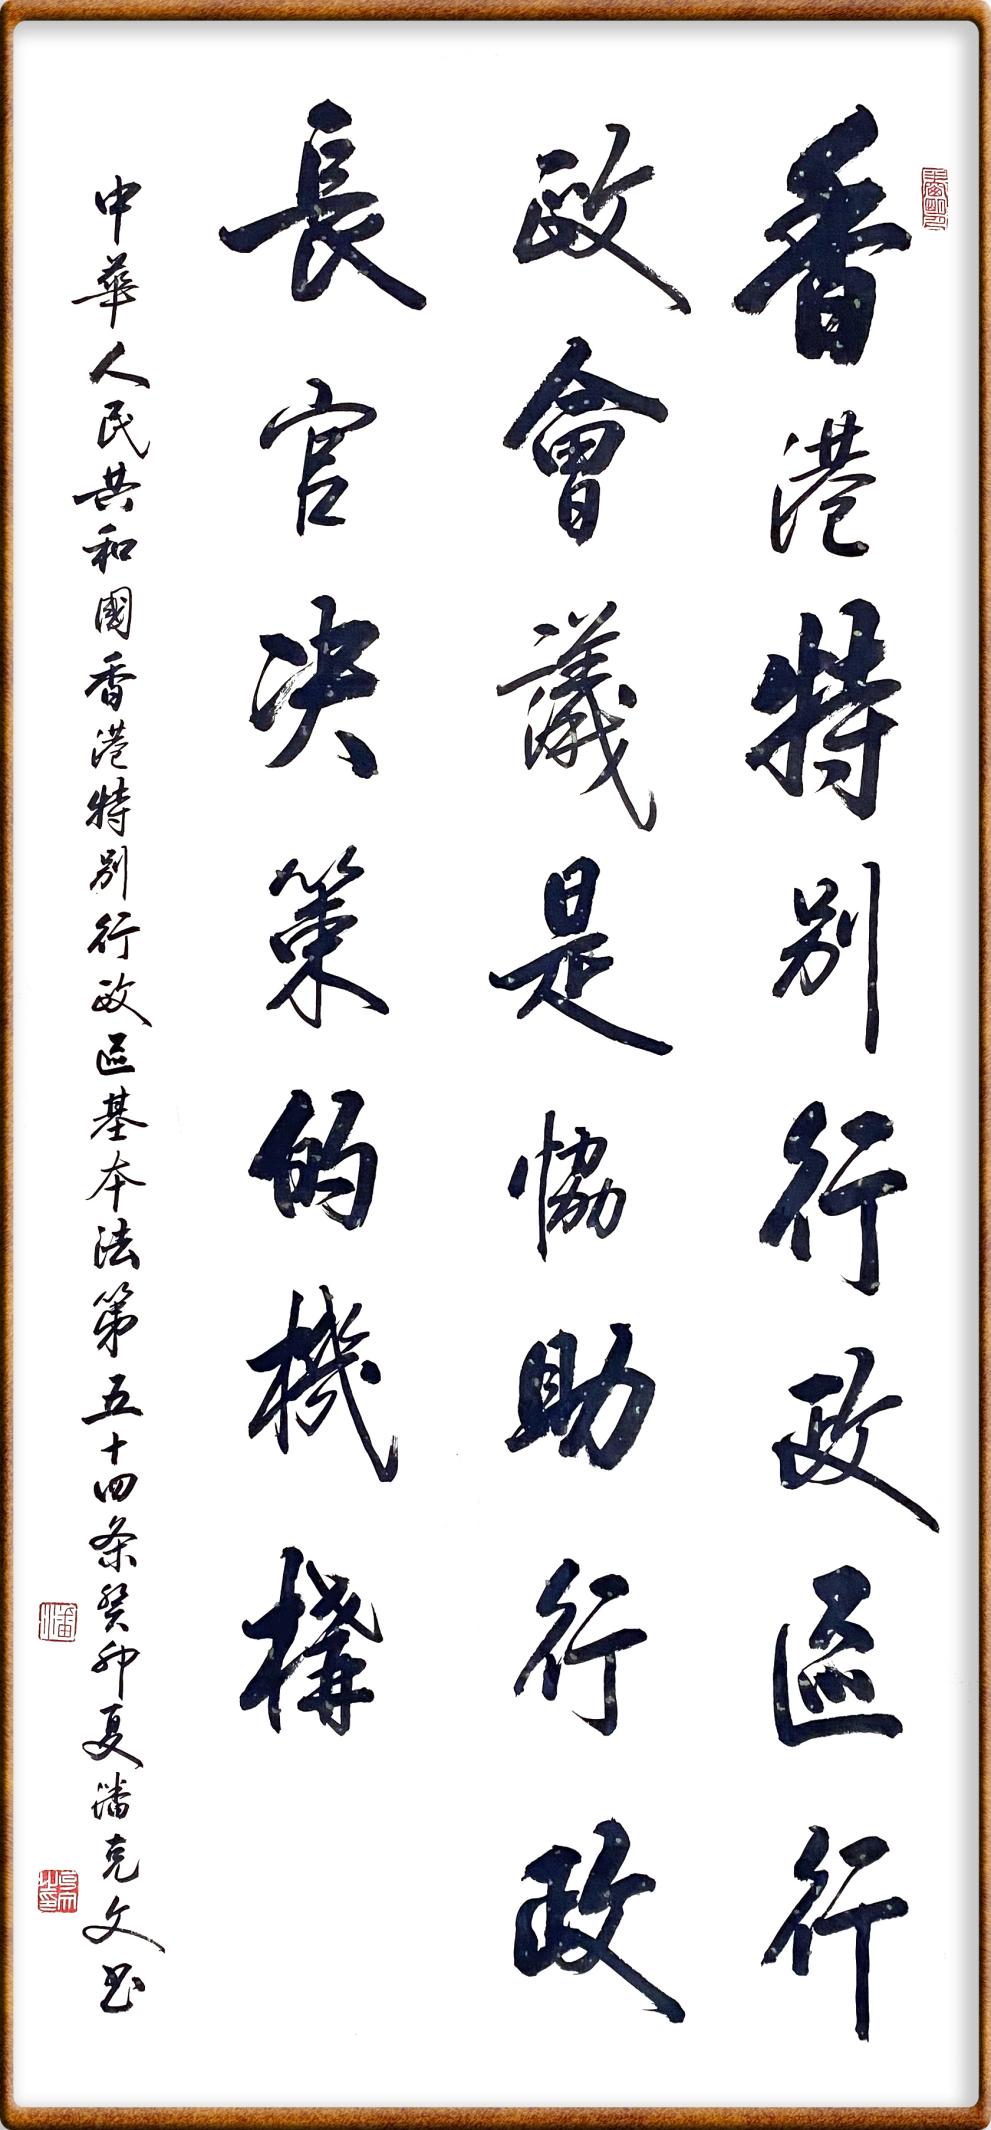 香港特别行政区行
政會議是協助行政
長官决策的機構
中華人民共和國香港特别行政区基本法第五十四条癸卯夏潘克文书